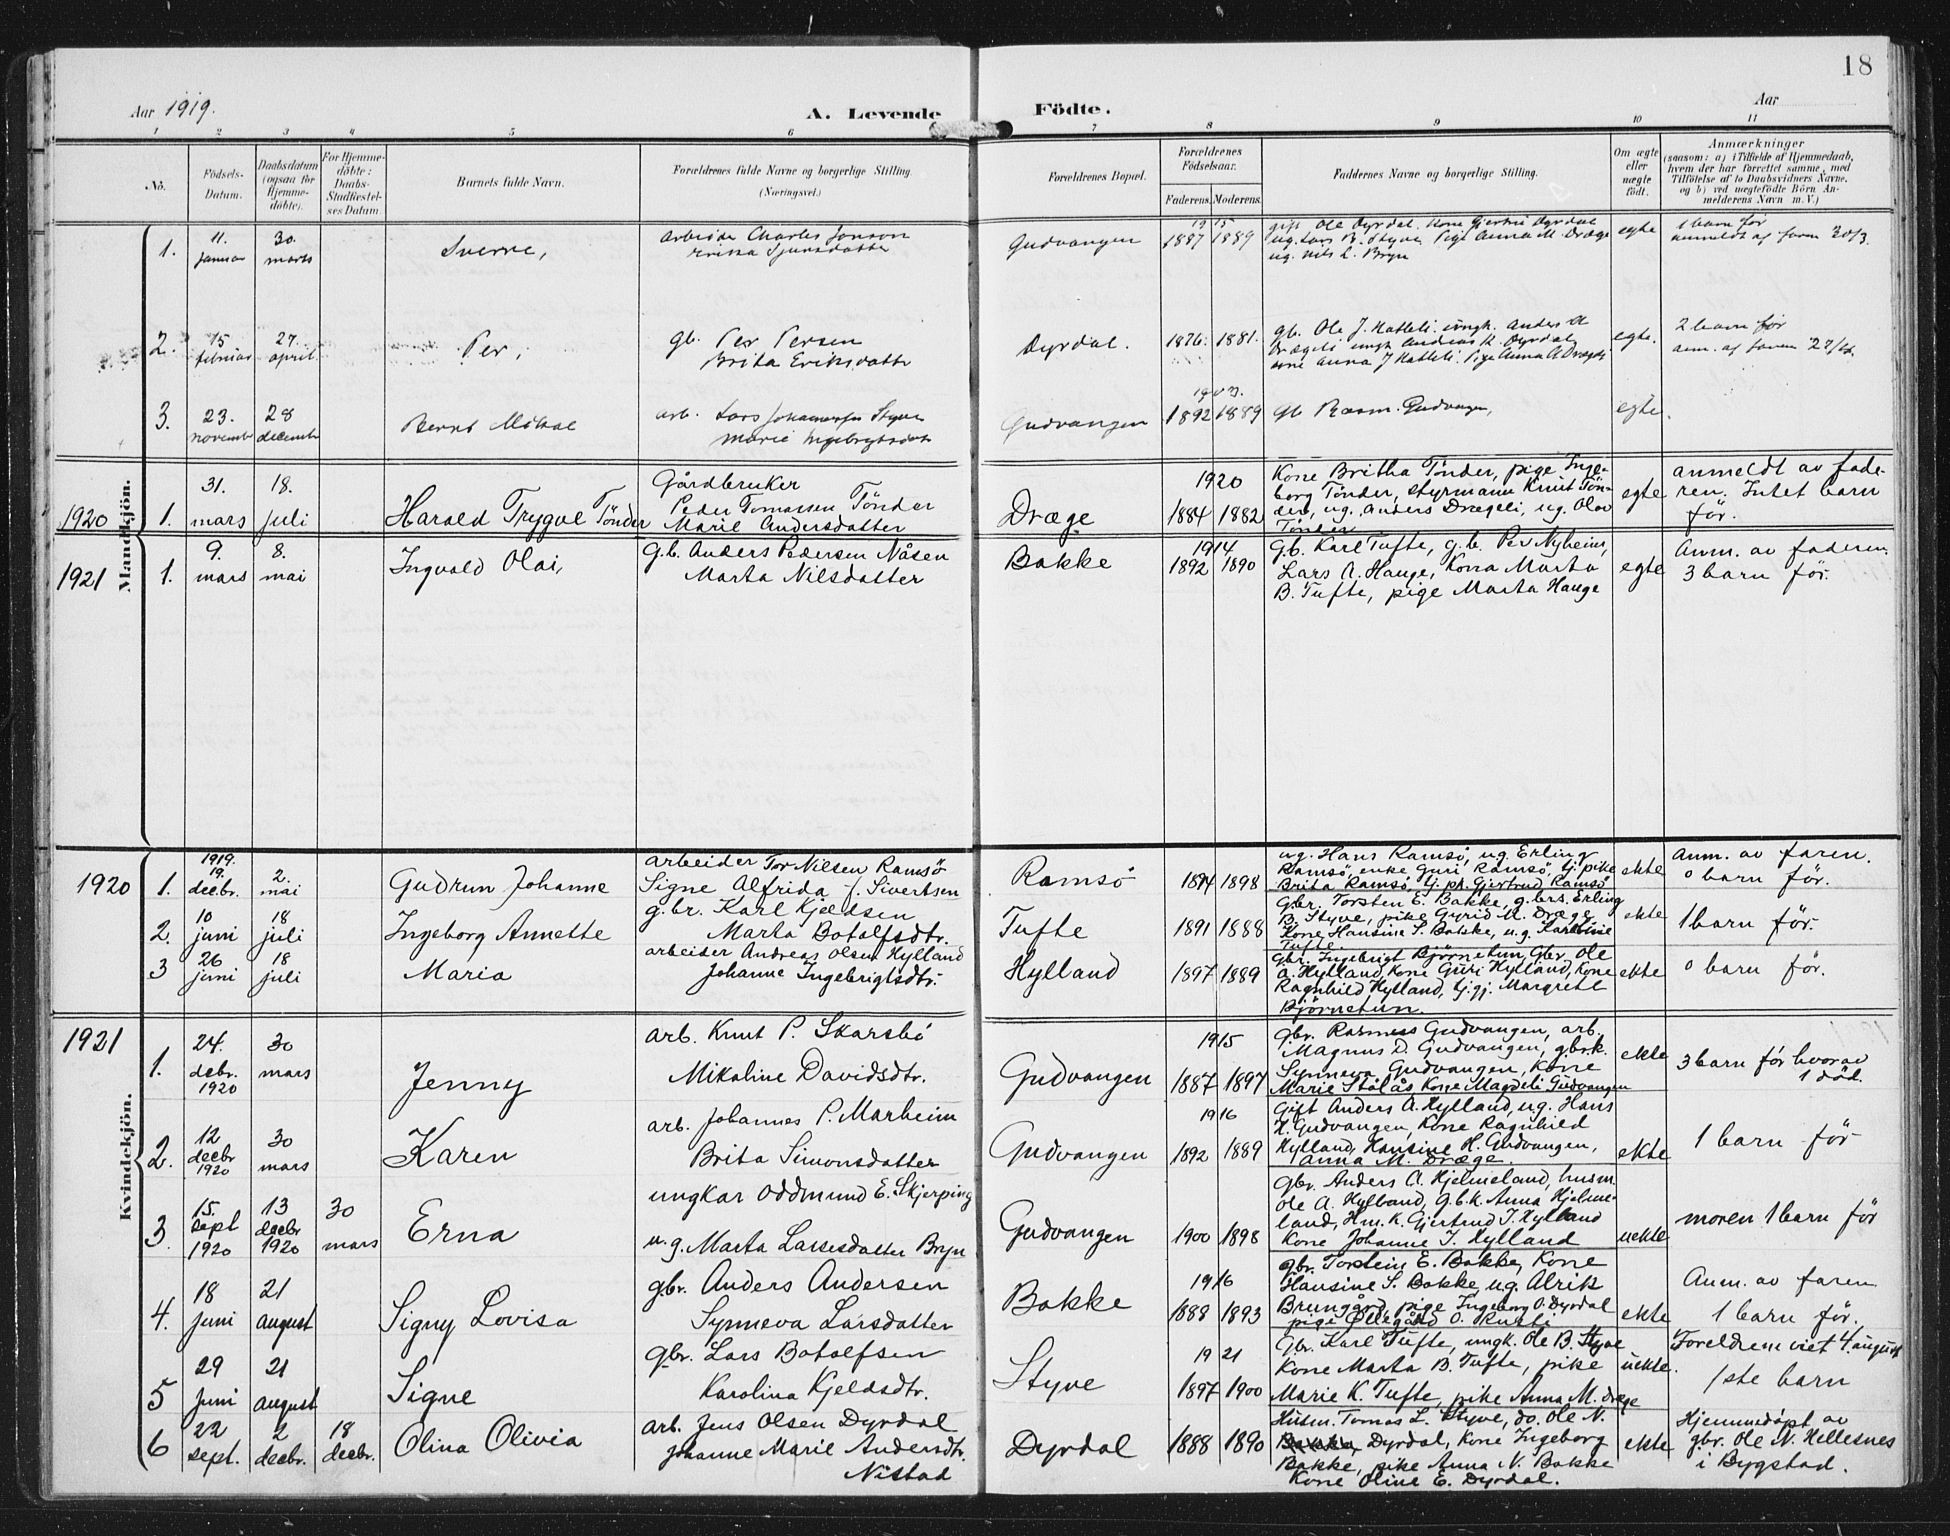 18
Aar 1919.
A. Levende Födte.
Aar
1 2 3 4 5 6 7 8 9 10 11
No.
Födsels-Datum.
Daabsdatum (ogsaa för Hjemme-döbte).
For Hjemme-döbte: Daabs-Stadfæstel-ses Datum
Barnets fulde Navn.
Forældrenes fulde Navne og borgerlige Stilling. (Næringsvei.)
Forældrenes Bopæl.
Forældrenes Födselsaar.
Faderens. Moderens.
Faddernes Navne og borgerlige Stilling.
Om ægte eller uægte födt.
Anmærkninger
(saasom: a) i Tilfælde af Hjemmedaab, hvem der har forrettet samme, med Tilföielse af to Daabsvidners Navne, og b) ved uægtefödte Börn An-melderens Navn m. V.)
Mandkjön.
1. 11. januar 30. marts Sverre,
arbeider Charles Jonson
Sjursdatter
Gudvangen
1915
1887 1889
gift Ole Dyrdal. Kone Gjertrud Dyrdal
ug. Lars B. Styve, Pige Anna M. Dræge
ug. Nils L. Bryn
egte
1 barn før
anmeldt af faren 30/3.
2. 15 februar 27. april Per,
gb. Per Persen
Brita Eriksdatter
Dyrdal.
1876. 1881.
gb. Ole J. Hatleli. ungk. Anders A
Drægeli ungk Andreas K. Dyrdal
Anna J Hatleli. Pige Anna A Dræge
egte.
2 barn før
anm. af faren 27/4.
3. 23. novembr 28 decembr Bernt Mikal
arb. Lars Johannesen Styve
Marie Ingebrigtsdatr
Gudvangen
1892 1889
gb Rasm. Gudvangen,
egte.
1920 1. 31. mars 18. juli Harald Trygve Tönder
Gårdbruker
Peder Tomassen Tönder
Marie Andersdatter
Dræge
1920
1884 1882
Kone Britha Tönder, pige Inge-
borg Tönder, styrmann Knut Tön-
der, ug. Anders Drægeli, ug. Olav
Tönder
egte
Anmeldt av fade-
ren. Intet barn
før.
1921 1. 9. mars 8. mai Ingvald Olai,
g.b. Anders Pedersen Nåsen
Marta Nilsdatter
Bakke
1914
1892 1890
G.b. Karl Tufte, g.b. Per Nyheim,
Lars A. Hauge, Kona Marta
B. Tufte, pige Marta Hauge
egte
Anm. av faderen.
3 barn før.
Kvindekjön.
1920 1. 1919. 19. decbr. 2. mai Gudrun Johanne
arbeider Tor Nilsen Ramsö
Signe Alfrida f. Sivertsen
Ramsö
1898
ug. Hans Ramsö, ug. Erling
Ramsö, enke Guri Ramsö, tj. pike
Brita Ramsö, tj. pk. Gjertrud Ramsö
ekte
Anm. av faren.
0 barn før.
2. 10 juni 18 juli Ingeborg Annette
g.br. Karl Kjeldsen
Marta Botolfsdtr.
Tufte
1891 1888
Gbr. Torsten E. Bakke, g.brs. Erling
B. Styve, pike Gyrid M. Dræge
Kone Hansine S. Bakke, u.g. Karl
Tufte
ekte
1 barn før.
3 26 juni 18 juli Maria
arbeider Andreas Olsen Hylland
Johanne Ingebrigtsdtr.
Hylland
1897 1889
Gbr. Ingebrigt Björnetun, Gbr. Ole
A. Hylland, Kone Guri Hylland, Kone
Ragnhild Hylland, tj.gj. Margrete
Björnetun.
ekte
0 barn før.
1921 1. 24. debr. 1920 30 mars Jenny
arb. Knut P. Skarsbö
Mikaline Davidsdtr.
Gudvangen
1915
1887 1897
gbr. Rasmus Gudvangen, arb.
Magnus D. Gudvangen, gbrk.
Synneva Gudvangen, Kone
Marie Stölås Kone Magdeli Gudvangen
ekte
3 barn før hvorav
1 död.
2. 12 decbr 1920 30 mars Karen
arb. Johannes P. Marheim
Brita Simonsdatter
Gudvangen
1916
1892 1889
Gift Anders A. Hylland, u.g. Hans
H. Gudvangen, Kone Ragnhild
Hylland, Hansine H. Gudvangen,
Anna M. Dræge.
ekte
1 barn før
3. 15. sept 1920 13 decbr 1920 30 mars Erna
ungkar Oddmund E. Skjerping
u.g. Marta Larsesdatter Bryn
Gudvangen
1900 1898
gbr. Anders A. Hjelmeland, husm.
Ole A. Hylland, g.b.k. Anna Hjelme-
land, Hm. K. Gjertrud J. Hylland
Kone Johanne J. Hylland
uekte
moren 1 barn før
4. 18 juni 21 august Signy Lovisa
gbr. Anders Andersen
Synneva Larsdatter
Bakke
1916
1888 1893
gbr. Torstein E. Bakke, Kone
Hansine S. Bakke, ug. Alrik
Brungård, pige Ingeborg O. Dyrdal
pige Ollegård O.
ekte
Anm. av faren
1 barn før.
5 29 Juni 21 august Signe
gbr. Lars Botolfsen
Karolina Kjeldsdtr.
Styve
1921
1897 1900
Gbr. Karl Tufte, ungk. Ole B. Styve
Kone Marta B. Tufte, pike
Marie K. Tufte, pike Anna M. Dræge
uekte.
Foreldrene viet 4. august
1ste barn
6 22 sept. 2 decbr. 18 decbr. Olina Olivia
arb. Jens Olsen Dyrdal
Johanne Marie Andersdtr.
Nistad
Dyrdal
1888 1890
Husm. Tomas L. Styve, do. Ole N.
Bakke, Dyrdal, Kone Ingeborg
Bakke, pike Anna N. Bakke
Kone Oline E. Dyrdal.
ekte
Hjemmedöpt av
gbr. Ole N. Hellesnes
i Bygstad.